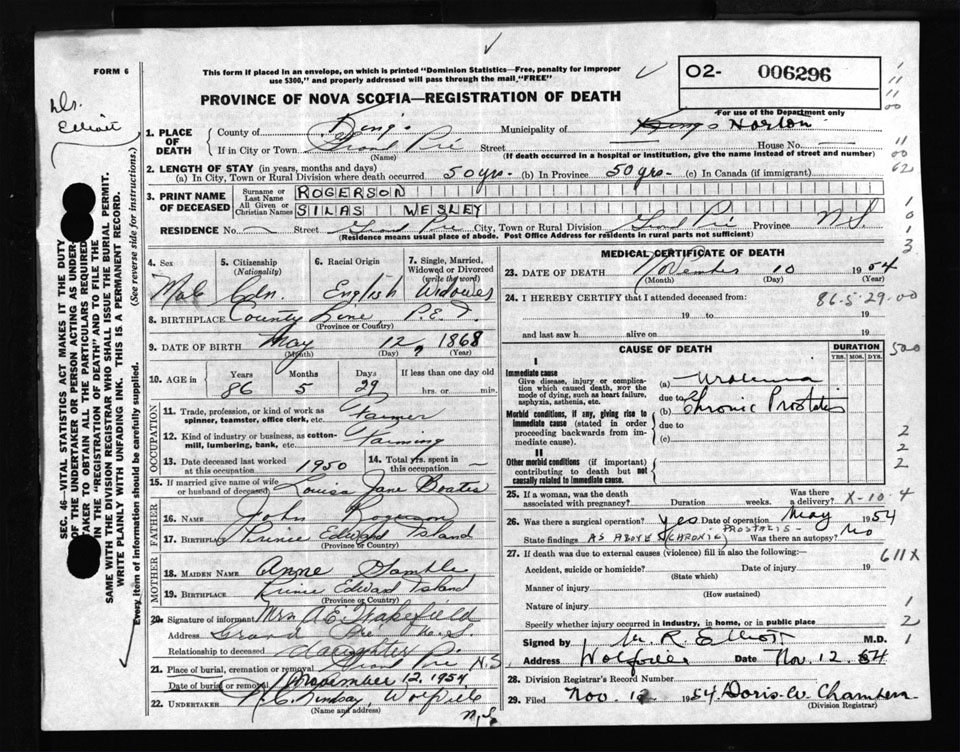 FORM 6
This form if placed in an envelope, on which is printed "Dominion Statistics—Free, penalty for improper
use $300," and properly addressed will pass through the mail "FREE"
O2- 006296
For use of the Department only
PROVINCE OF NOVA SCOTIA—REGISTRATION OF DEATH
Dr.
Elliott
1. PLACE OF DEATH
County of King's Municipality of Kings Horton
If in City or Town Grand Pré Street House No.
(Name) (If death occurred in a hospital or institution, give the name instead of street and number)
2. LENGTH OF STAY (in years, months and days)
(a) In City, Town or Rural Division where death occurred 50 yrs. (b) In Province 50 yrs. (c) In Canada (if immigrant)
3. PRINT NAME OF DECEASED
Surname or Last Name ROGERSON
All Given or Christian Names SILAS WESLEY
RESIDENCE No. Street Grand Pré City, Town or Rural Division Grand Pré Province N.S.
(Residence means usual place of abode. Post Office Address for residents in rural parts not sufficient)
4. Sex
Male
5. Citizenship
(Nationality)
Cdn.
6. Racial Origin
English
7. Single, Married,
Widowed or Divorced
(write the word)
Widower
8. BIRTHPLACE County Line, P.E.I.
(Province or Country)
9. DATE OF BIRTH May 12, 1868
(Month) (Day) (Year)
10. AGE in Years Months Days If less than one day old
86 5 29 hrs. or min.
OCCUPATION
11. Trade, profession, or kind of work as
spinner, teamster, office clerk, etc. Farmer
12. Kind of industry or business, as cotton-
mill, lumbering, bank, etc. Farming
13. Date deceased last worked
at this occupation 1950
14. Total yrs. spent in
this occupation —
15. If married give name of wife
or husband of deceased Louisa Jane Boates
FATHER
16. NAME John Rogerson
17. BIRTHPLACE Prince Edward Island
(Province or Country)
MOTHER
18. MAIDEN NAME Anne Gamble
19. BIRTHPLACE Prince Edward Island
(Province or Country)
20. Signature of informant Mrs A.E. Wakefield
Address Grand Pre N.S.
Relationship to deceased daughter
21. Place of burial, cremation or removal Grand Pré N.S
Date of burial or removal November 12, 1954
22. UNDERTAKER Wolfville
(Name and address) N.S.
MEDICAL CERTIFICATE OF DEATH
23. DATE OF DEATH November 10 1954
(Month) (Day) (Year)
24. I HEREBY CERTIFY that I attended deceased from: 86-5-29-00
19 to 19
and last saw h alive on 19
CAUSE OF DEATH
DURATION
YRS. MOS. DYS.
I
Immediate cause
Give disease, injury or complica-
tion which caused death, NOT the
mode of dying, such as heart failure,
asphyxia, asthenia, etc.
(a) Uraemia
due to
Morbid conditions, if any, giving rise to
immediate cause (stated in order
proceeding backwards from im-
mediate cause).
(b) Chronic Prostatis
due to
(c)
II
Other morbid conditions (if important)
contributing to death but not
causally related to immediate cause.
25. If a woman, was the death
associated with pregnancy? Duration weeks. Was there
a delivery? X-10-4
26. Was there a surgical operation? Yes Date of operation May 1954
State findings AS ABOVE (CHRONIC PROSTATIS- Was there an autopsy? No
27. If death was due to external causes (violence) fill in also the following:—
611X
Accident, suicide or homicide? Date of injury 19
(State which)
Manner of injury
(How sustained)
Nature of injury
Specify whether injury occurred in industry, in home, or in public place
Signed by R. Elliott M.D.
Address Wolfville Date Nov. 12 54
28. Division Registrar's Record Number
29. Filed Nov. 1954 Doris W. Chambers
(Division Registrar)
SEC. 46—VITAL STATISTICS ACT MAKES IT THE DUTY
OF THE UNDERTAKER OR PERSON ACTING AS UNDER-
TAKER TO OBTAIN ALL THE PARTICULARS REQUIRED
IN THE "REGISTRATION OF DEATH" AND TO FILE THE
SAME WITH THE DIVISION REGISTRAR WHO SHALL ISSUE THE BURIAL PERMIT.
WRITE PLAINLY WITH UNFADING INK. THIS IS A PERMANENT RECORD.
Every item of information should be carefully supplied. (See reverse side for instructions.)
11
00
11
00
62
1
0
1
3
500
2
2
2
1
2
1